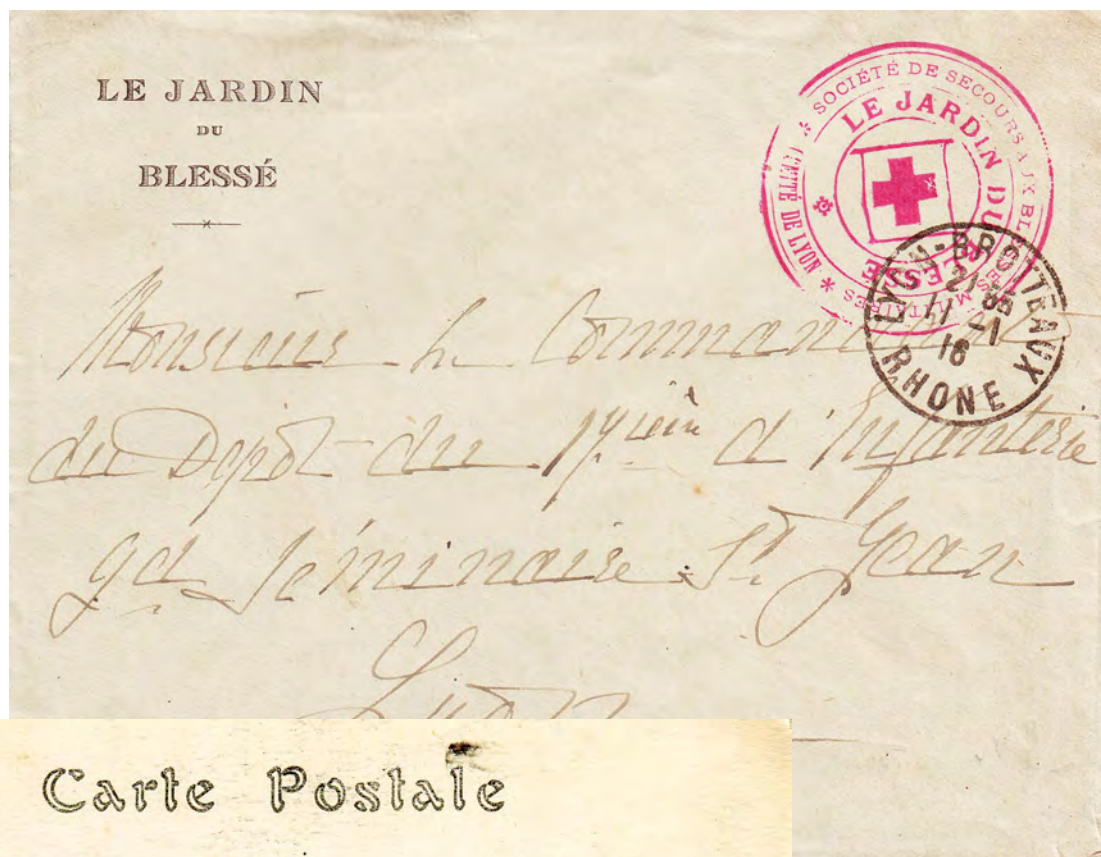 LE JARDIN
DU
BLESSÉ
SOCIÉTÉ DE SECOURS AUX BLESSÉS MILITAIRES * COMITÉ DE LYON *
LE JARDIN DU BLESSÉ
LYON-BROTTEAUX
21 35
11 -1
16
RHONE
Monsieur le Commandant
du Depôt du 17eme d'Infanterie
gd Séminaire St Jean
Lyon
Carte Postale